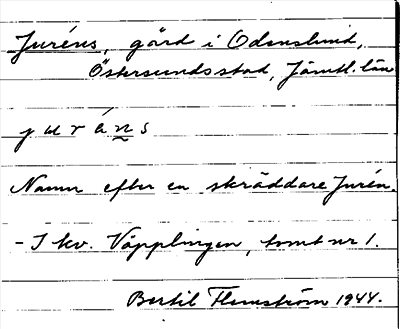 Juréns, gård i Odenslund,
Östersunds stad, Jämtl. län
jurén̰s
Namn efter en skräddare Jurén.
- I kv. Väpplingen, tomt nr 1.
Bertil Flemström 1944.